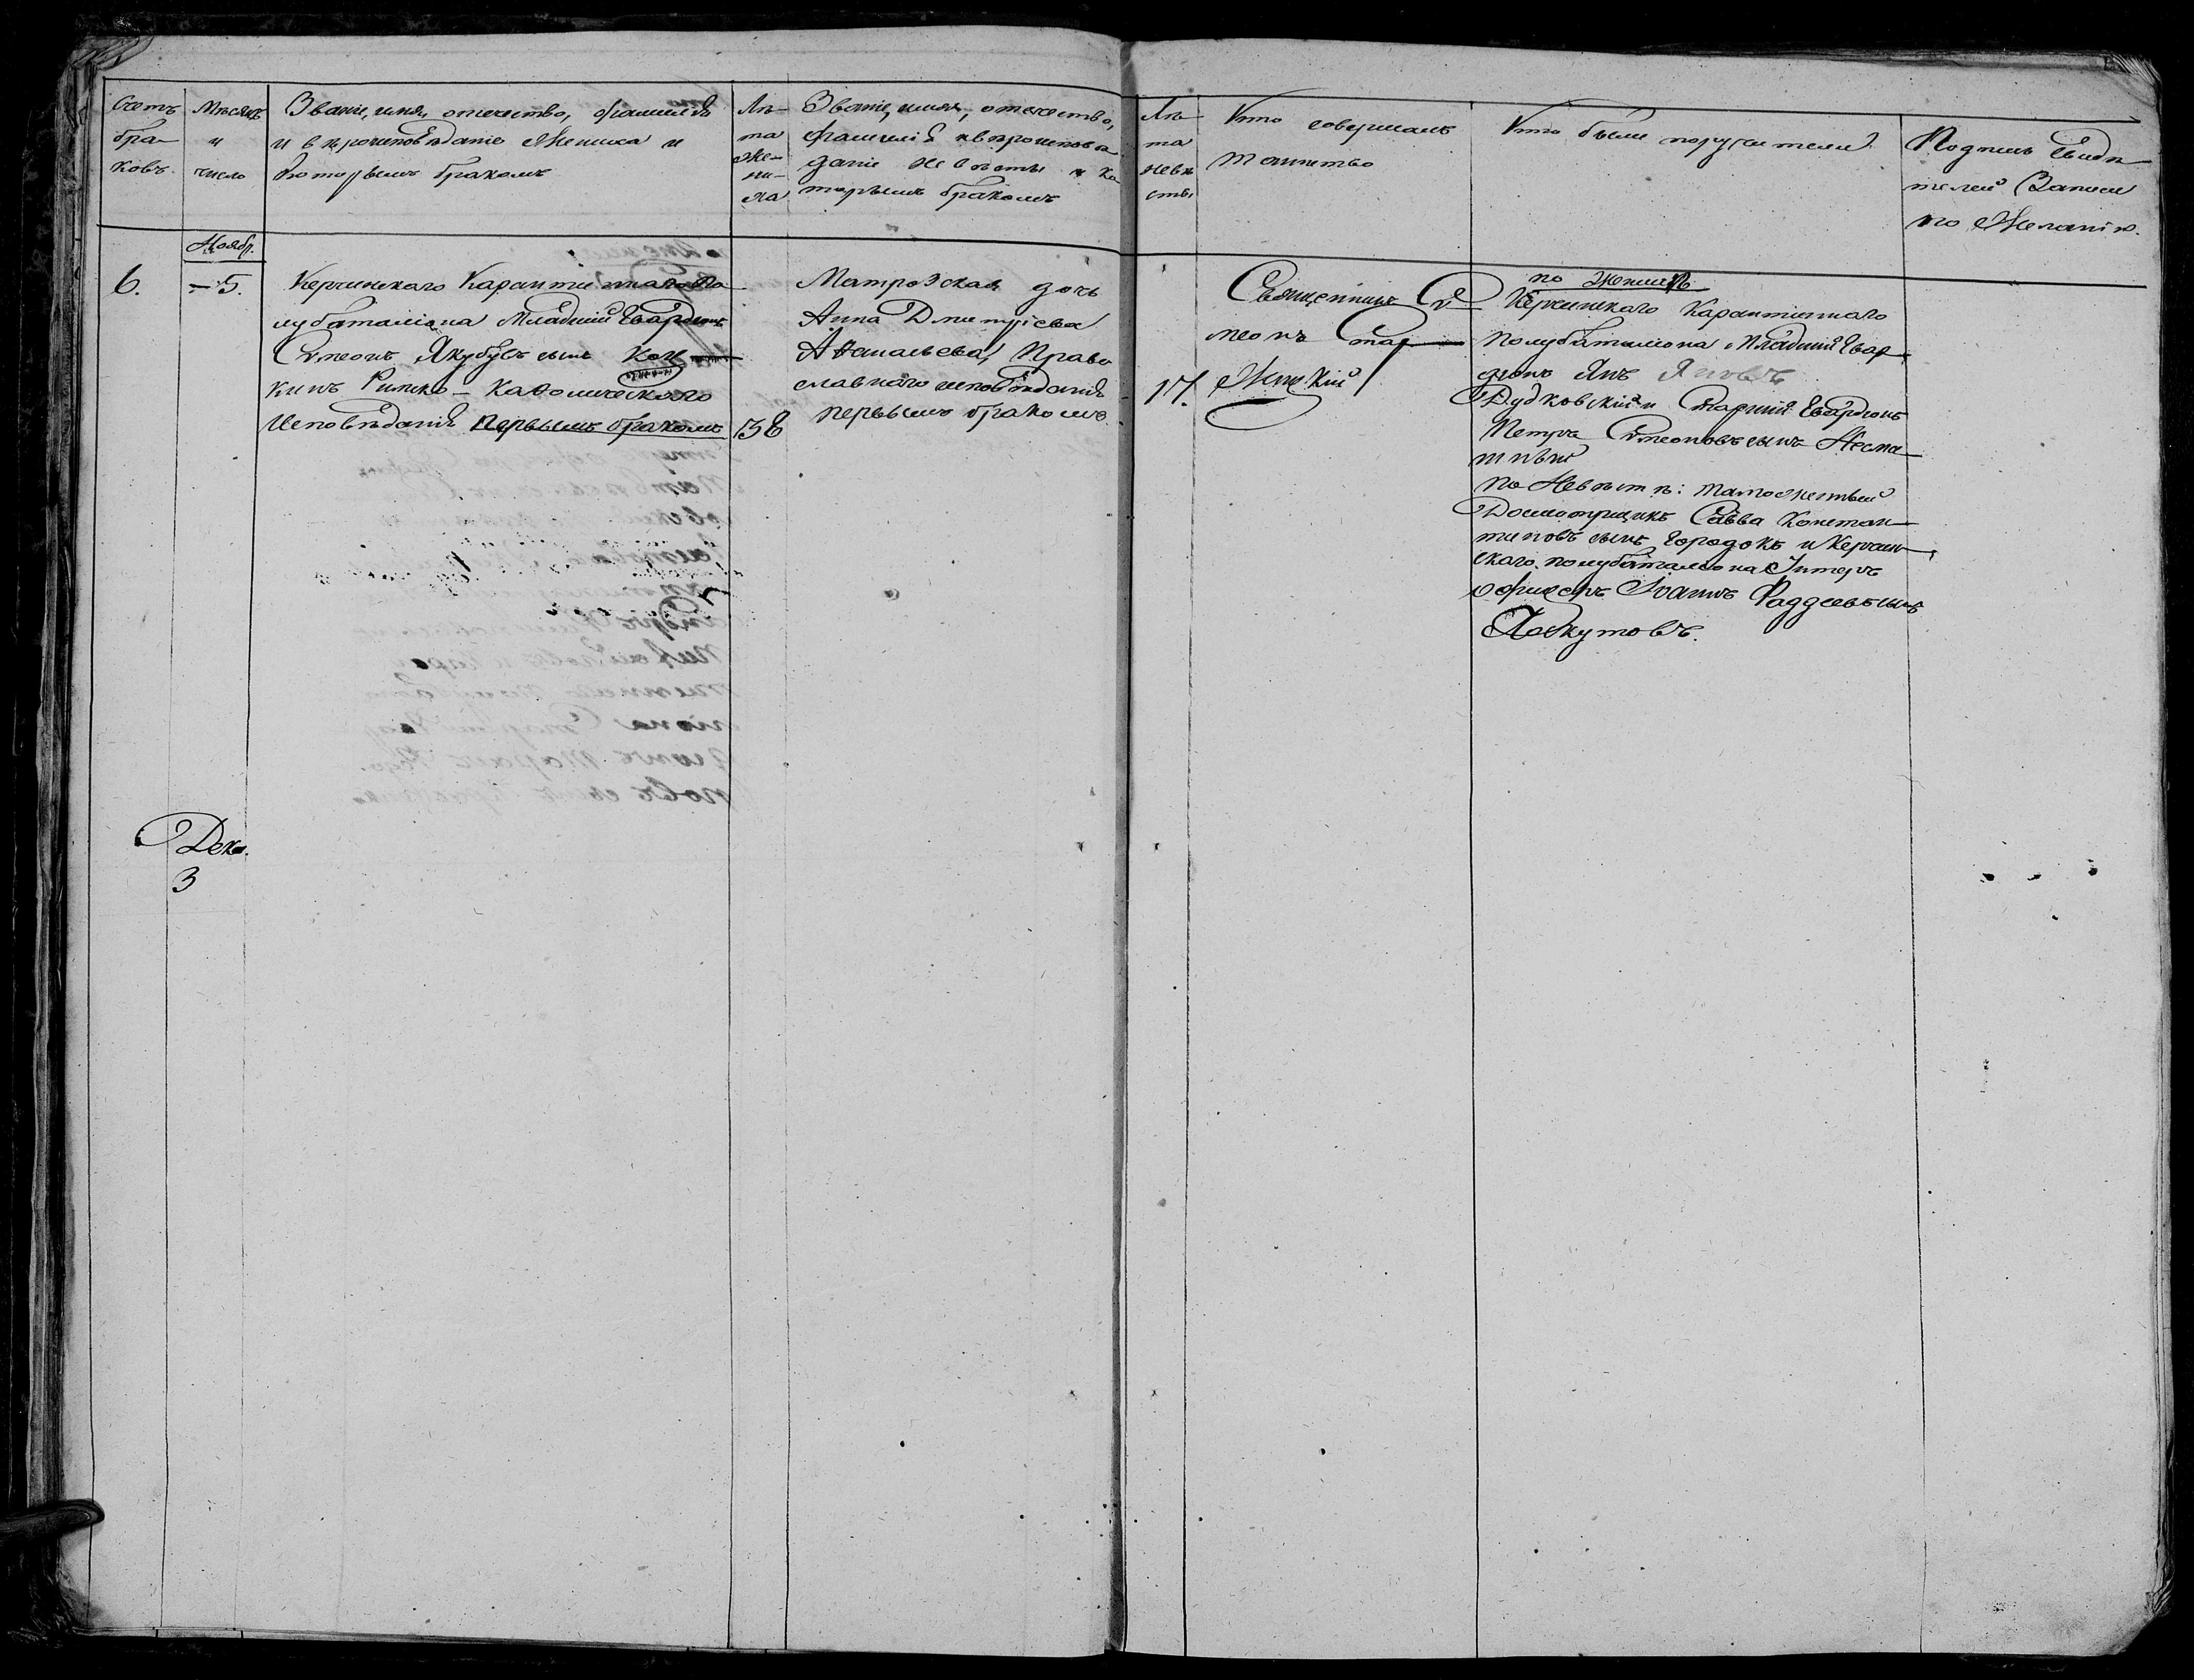 Счетъ
бра-
ковъ.
Мѣсяцъ
и
число
Званіе, имя, отечество, фамилія
и вѣроисповѣданіе Жениха и
которымъ бракомъ
Лѣ-
та
Же-
ни-
ха
Званіе, имя, отечество,
фамилія и вѣроисповѣ-
даніе Невѣсты и ко-
торымъ бракомъ
Лѣ-
та
невѣ
сты
Кто совершалъ
таинство
Кто были поручители
Подпись свидѣ-
телей Записи
по Желанію.
Ноябр.
6.
5.
Керчинскаго Карантиннаго По-
лубаталіона Младшій Гвардіонъ
Симеонъ Якубусъ сынъ Кон-
кинъ Римско-Каѳолическаго
Исповѣданія первымъ бракомъ
38
Матрозская дочь
Анна Дмитріева
Аѳанасьева, Право
славнаго исповѣданія
первымъ бракомъ.
17.
Священникъ Си-
меонъ Стар-
Жицкій
по Женихѣ
Керчинскаго Карантиннаго
полубаталіона Младшій Гвар-
діонъ Янъ Яновъ
Дудковскій и Старшій Гвардіонъ
Петръ Симеоновъ сынъ Несма-
шный
По Невѣстѣ: таможенный
Досмотрщикъ Савва Констан-
тиновъ сынъ Городокъ и Керчин-
скаго полубаталіона Унтеръ
офицеръ Іоаннъ Фаддеевъ сынъ
Лоскутовъ.
Дек.
3